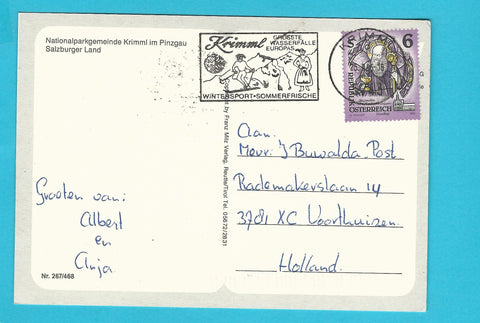 Nationalparkgemeinde Krimml im Pinzgau
Salzburger Land
Krimml
GRÖSSTE
WASSERFÄLLE
EUROPAS
WINTERSPORT-SOMMERFRISCHE
KRIMML
6
REPUBLIK
ÖSTERREICH
Aan:
Mevr: J Buwalda. Post
Rademakerslaan 14
3781 XC Voorthuizen
Holland.
Groeten van:
Albert
en
Anja
by Franz Milz Verlag, Reutte/Tirol Tel. 05672/2831
Nr. 267/468